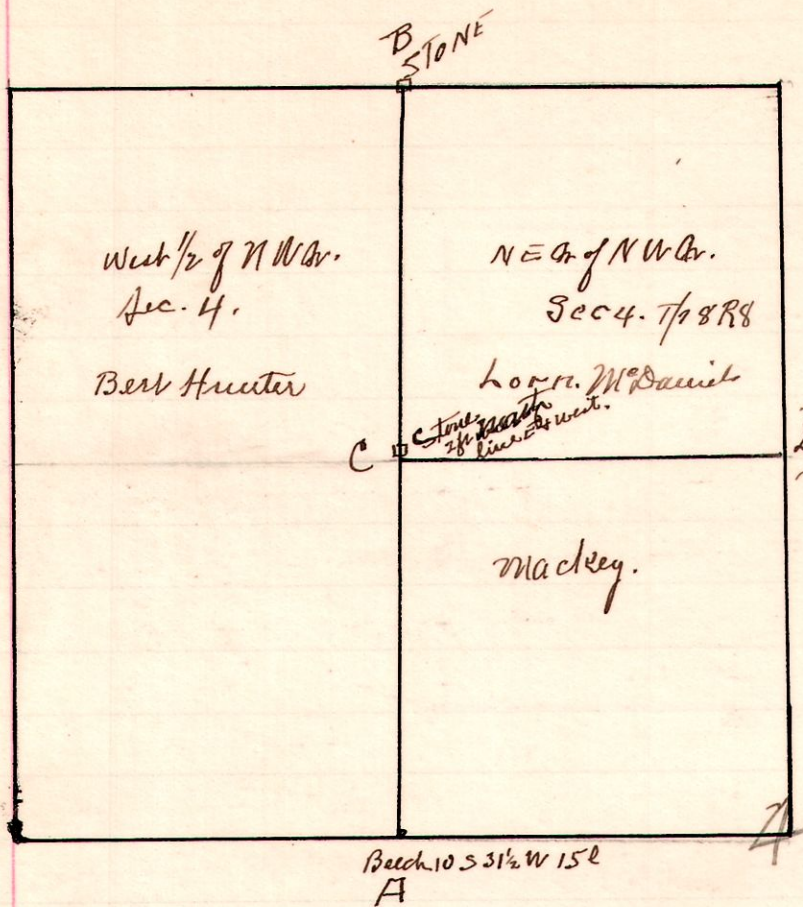 B
STONE
West 1/2 of N W Qr.
Sec. 4.
Bert Hunter
N E Qr of N W Qr.
Sec 4. T/7 8 R8
Lorn. McDaniel
C
Stone
2 ft North
line E & West.
Mackey.
4
Beech 10 S 31½ W 15 l
A